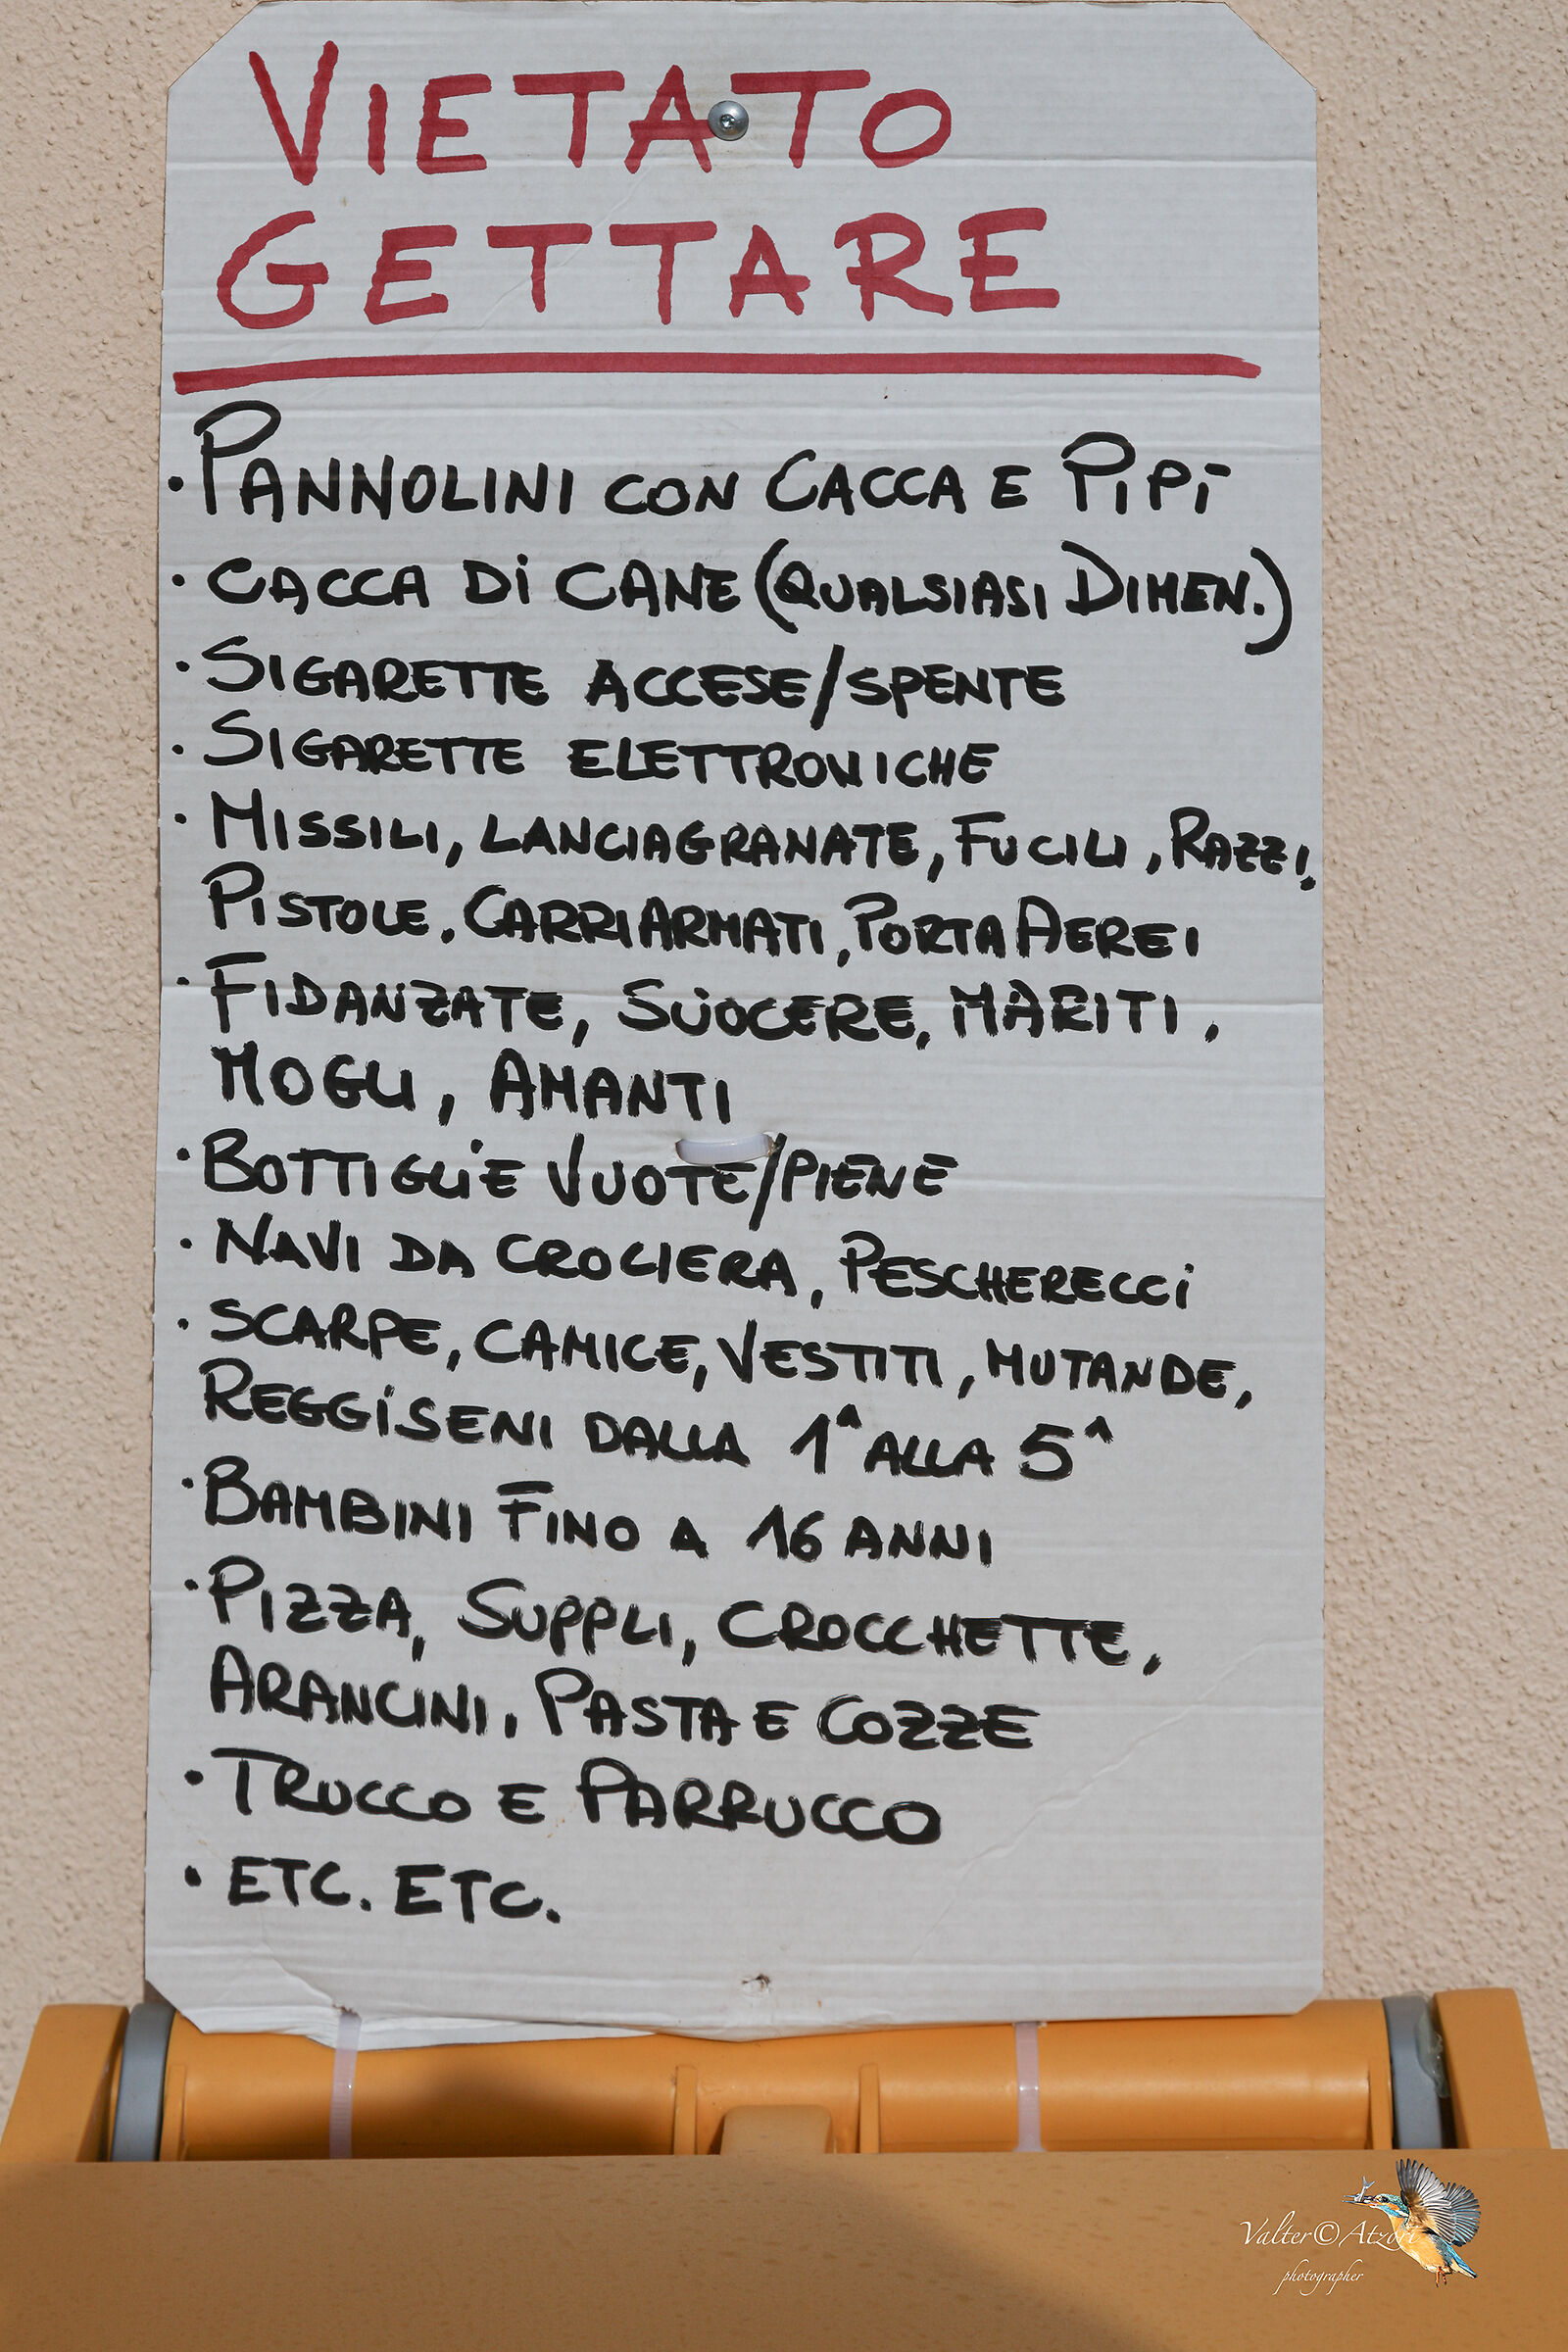 VIETATO
GETTARE
• PANNOLINI CON CACCA E PIPÌ
• CACCA Di CANE (QUALSIASI DIMEN.)
• SIGARETTE ACCESE/SPENTE
• SIGARETTE ELETTRONICHE
• MISSILI, LANCIAGRANATE, FUCILI, RAZZI,
PISTOLE, CARRIARMATI, PORTAAEREI
• FIDANZATE, SUOCERE, MARITI,
MOGLI, AMANTI
• BOTTIGLiE VUOTE/PIENE
• NAVI DA CROCIERA, PESCHERECCi
• SCARPE, CAMICE, VESTITI, MUTANDE,
REGGiSENI DALLA 1^ ALLA 5^
• BAMBINI FINO A 16 ANNI
• PIZZA, SUPPLI, CROCCHETTE,
ARANCINI, PASTA E COZZE
• TRUCCO E PARRUCCO
• ETC. ETC.
Valter©Atzori
photographer